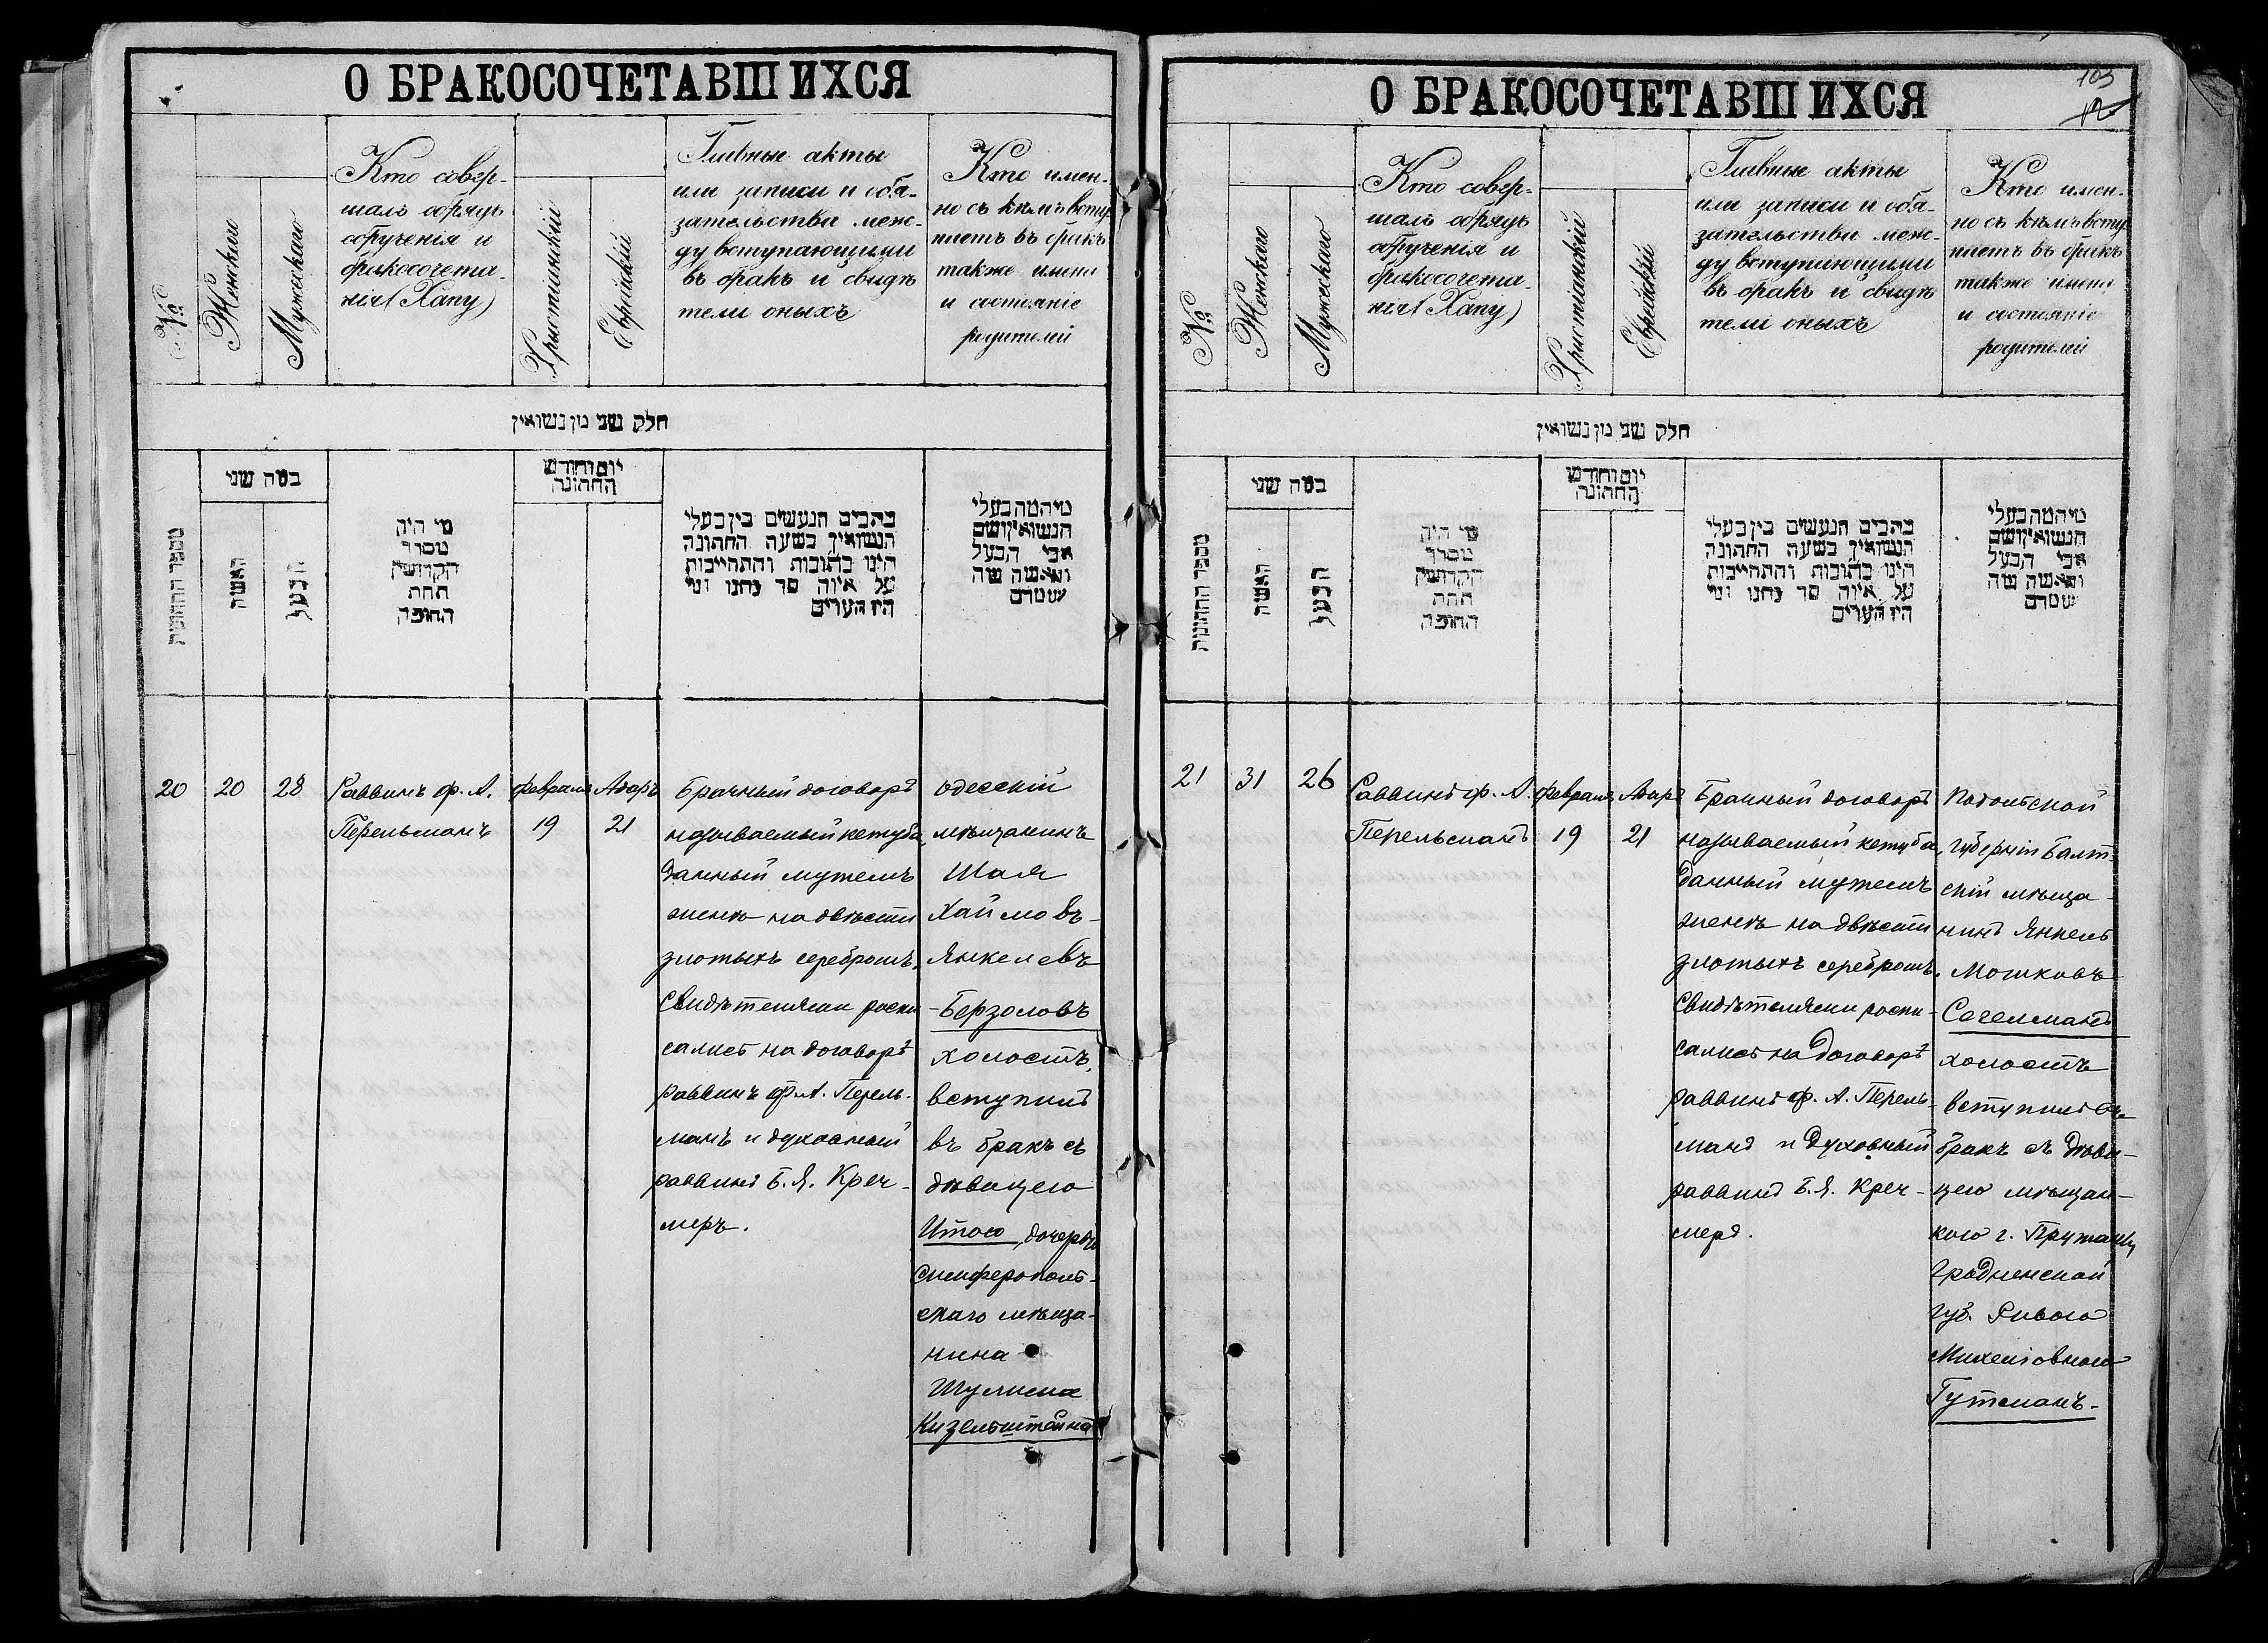 О БРАКОСОЧЕТАВШИХСЯ
№
Женскаго
Мужескаго
Кто совер-
шалъ обрядъ
обрученія и
бракосочета-
нія (Хапу)
Христіанскій
Еврейскій
Главные акты
или записи и обя-
зательства меж-
ду вступающими
въ бракъ и свидѣ
тели оныхъ
Кто имен-
но съ кѣмъ всту
паетъ въ бракъ
также имена
и состояніе
родителей
חלק שני מן נשואין
מספר החתונות
במה שני
האשה
הבעל
מי היה
מסדר
הקדושין
תחת
החופה
יום וחודש
החתונה
כתבים הנעשים בין בעלי
הנשואין בשעה החתונה
היינו כתובות והתחייבות
על איזה סך נתנו ומי
היו העדים
מי המה בעלי
הנשואין ושם
אבי הבעל
והאשה מה
שמדם
20
20
28
Раввинъ ф. А.
Перельманъ
Февраля
19
Адаръ
21
Брачный договоръ
называемый кетуба,
данный мужемъ
женѣ на двѣсти
злотыхъ серебромъ.
Свидѣтелями роспи
сались на договорѣ
раввинъ ф. А. Перель-
манъ и духовный
раввинъ Б. Я. Креч-
меръ.
Одесскій
мѣщанинъ
Шая
Хаймовъ-
Янкелевъ
-Берзоловъ
холостъ,
вступилъ
въ бракъ съ
дѣвицею
Итою, дочерью
Симферополь-
скаго мѣща-
нина
Шулима
Кизельштейна
О БРАКОСОЧЕТАВШИХСЯ
103
№
Женскаго
Мужескаго
Кто совер-
шалъ обрядъ
обрученія и
бракосочета-
нія (Хапу)
Христіанскій
Еврейскій
Главные акты
или записи и обя-
зательства меж-
ду вступающими
въ бракъ и свидѣ
тели оныхъ
Кто имен-
но съ кѣмъ всту
паетъ въ бракъ
также имена
и состояніе
родителей
חלק שני מן נשואין
מספר החתונות
במה שני
האשה
הבעל
מי היה
מסדר
הקדושין
תחת
החופה
יום וחודש
החתונה
כתבים הנעשים בין בעלי
הנשואין בשעה החתונה
היינו כתובות והתחייבות
על איזה סך נתנו ומי
היו העדים
מי המה בעלי
הנשואין ושם
אבי הבעל
והאשה מה
שמדם
21
31
26
Раввинъ ф. А.
Перельманъ
Февраля
19
Адаръ
21
Брачный договоръ
называемый кетуба,
данный мужемъ
женѣ на двѣсти
злотыхъ серебромъ.
Свидѣтелями роспи-
сались на договорѣ
раввинъ ф. А. Перель-
манъ и духовный
раввинъ Б. Я. Креч-
меръ.
Подольской
губерніи Балт-
скій мѣща-
нинъ Янкель
Мошковъ
Сегелманъ
холостъ
вступилъ въ
бракъ съ дѣви-
цею мѣщан-
кою г. Пружаны
Гродненской
губ. Ривою
Михелівною
Гутманъ.